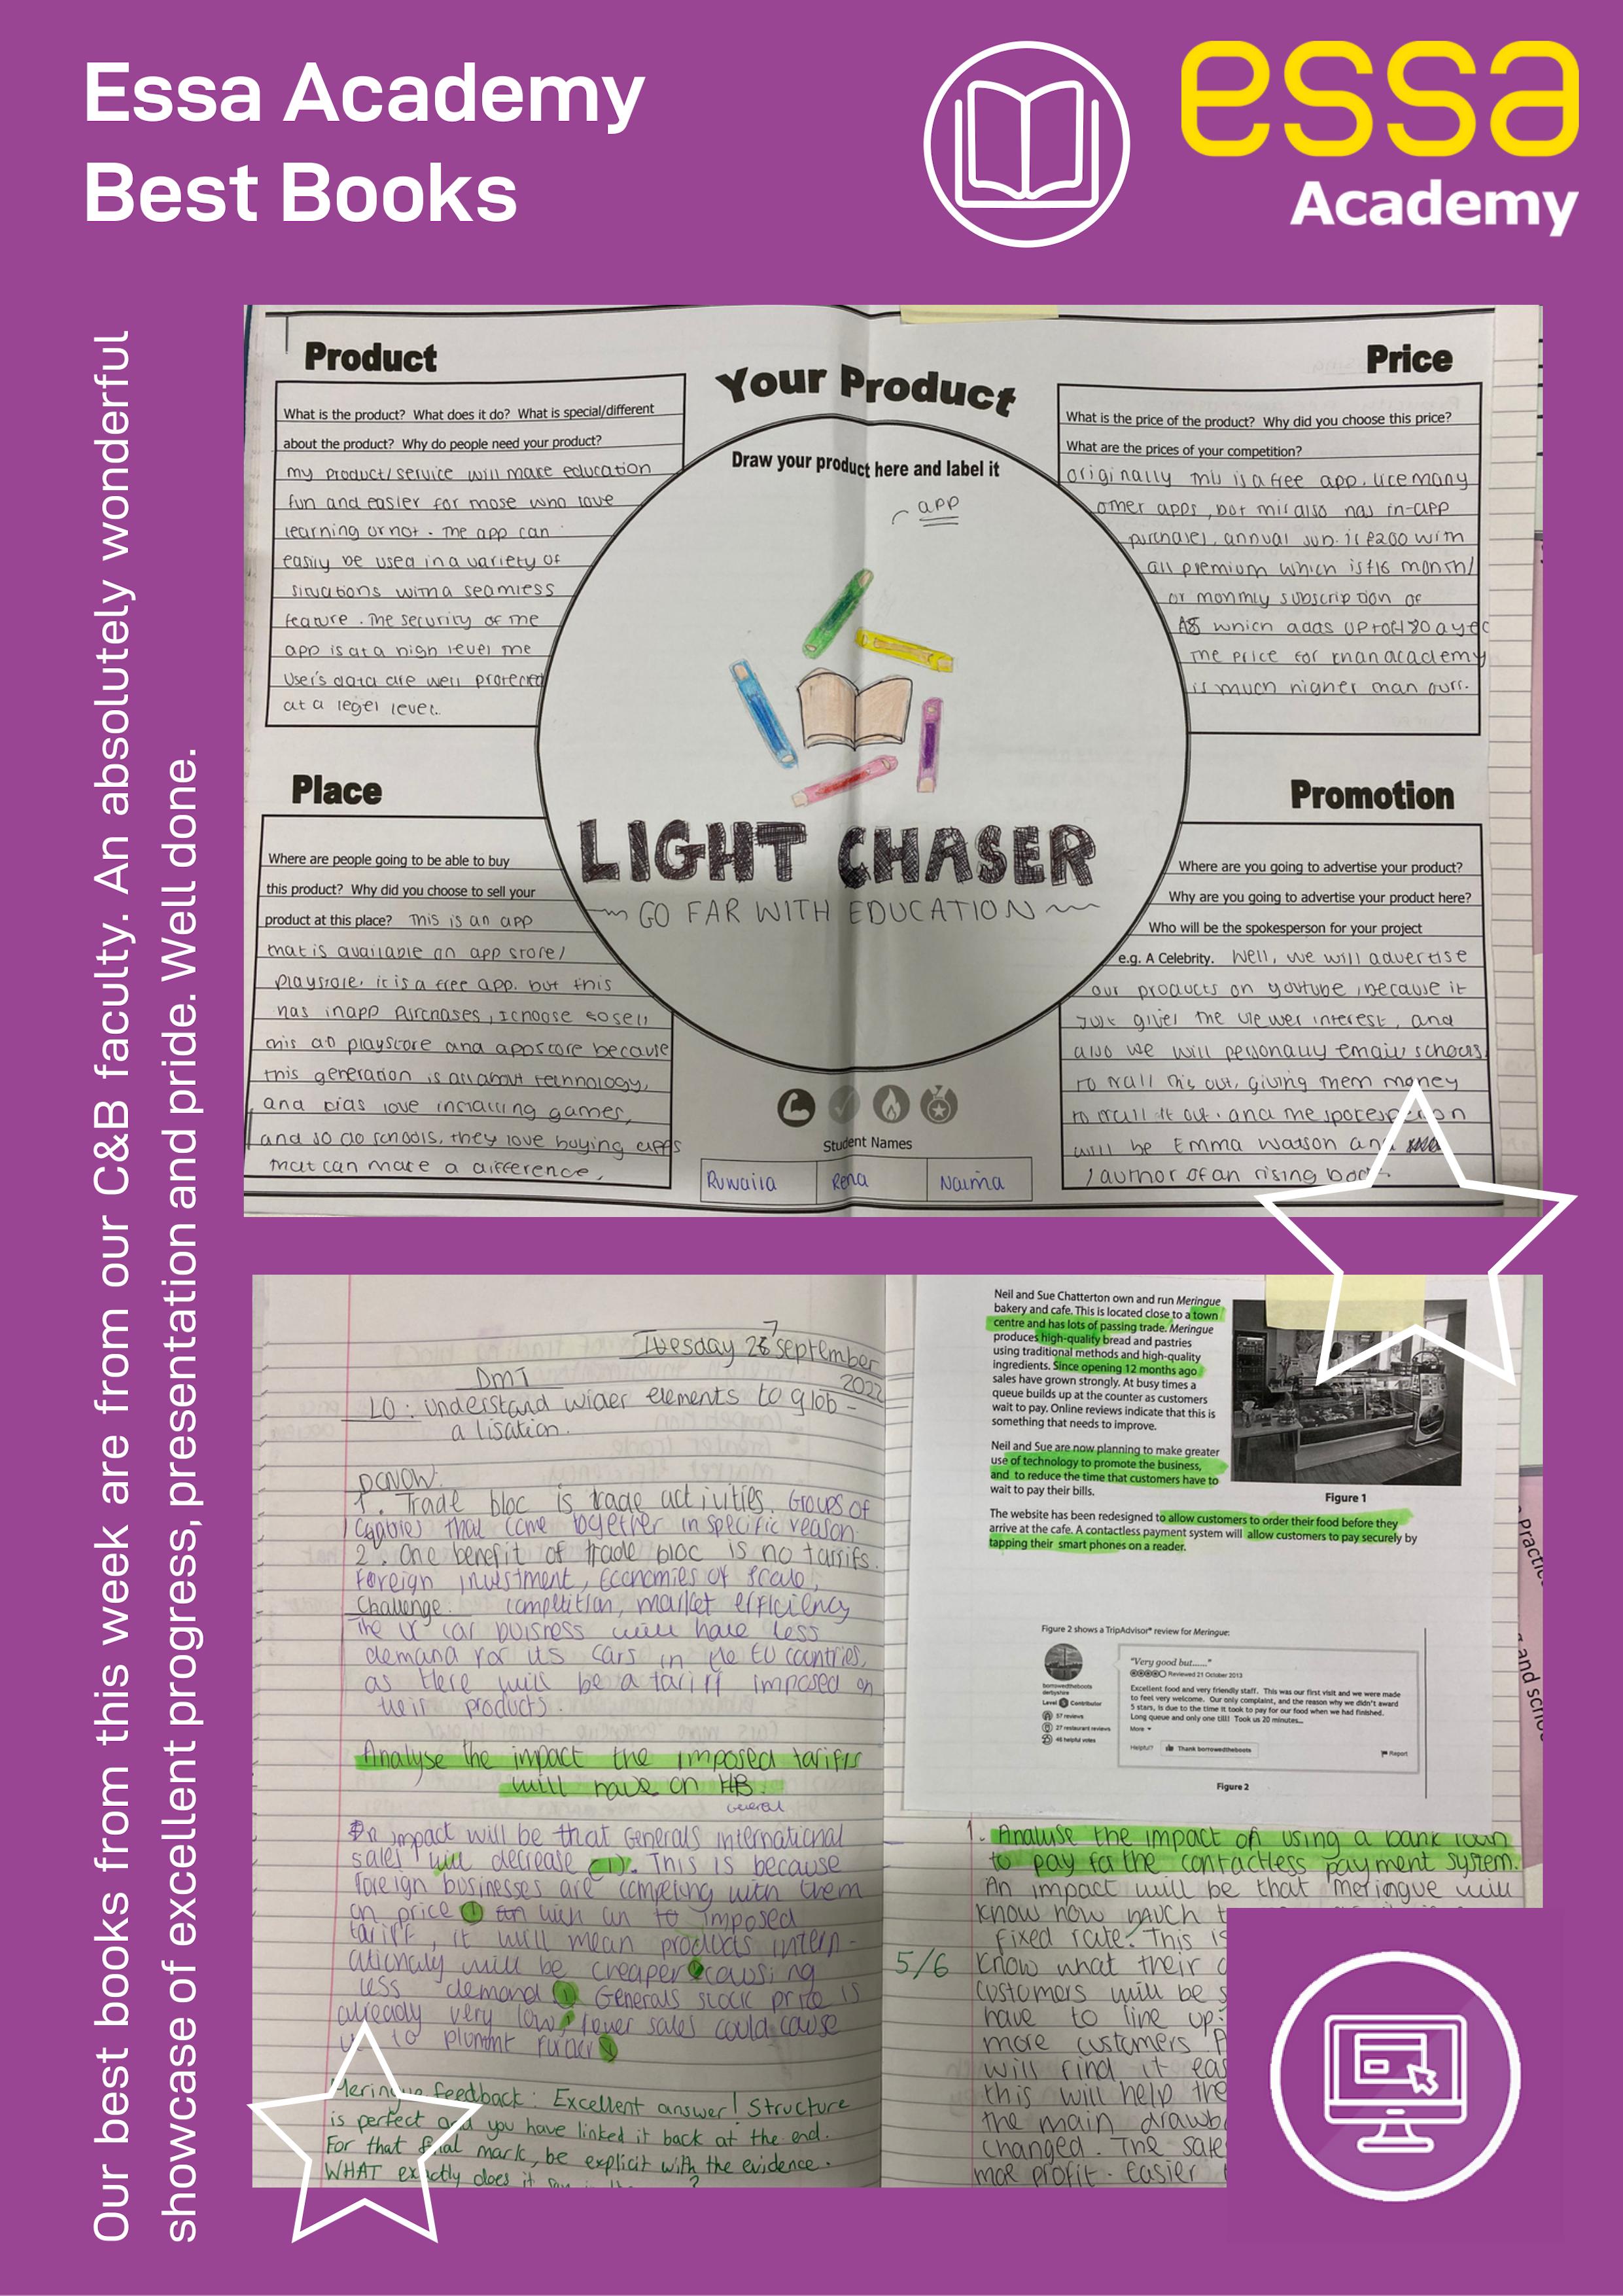 Essa Academy
Best Books
essa
Academy
Our best books from this week are from our C&B faculty. An absolutely wonderful
showcase of excellent progress, presentation and pride. Well done.
Product
What is the product? What does it do? What is special/different
about the product? Why do people need your product?
my product/service will make education
fun and easier for those who love
learning or not. The app can
easily be used in a variety of
situations with a seamless
feature. The security of the
app is at a high level the
User's data are well protected
at a legel level.
Your Product
Draw your product here and label it
app
LIGHT CHASER
GO FAR WITH EDUCATION
Student Names
Ruwaila
Rena
Naima
Price
What is the price of the product? Why did you choose this price?
What are the prices of your competition?
originally this is a free app, like many
other apps, but this also has in-app
purchases, annual sub. is £200 with
all premium which is £16 month/
or monthly subscription of
which adds up to
the price for khan academy
is much higher than ours.
Place
Where are people going to be able to buy
this product? Why did you choose to sell your
product at this place? This is an app
that is available on app store/
playstore. it is a free app. but this
has inapp purchases, I choose to sell
this at playstore and appstore because
this generation is all about technology,
and kids love installing games,
and so do schools, they love buying apps
that can make a difference.
Promotion
Where are you going to advertise your product?
Why are you going to advertise your product here?
Who will be the spokesperson for your project
e.g. A Celebrity. Well, we will advertise
our products on youtube, because it
gives the viewer interest, and
also we will personally email schools
to out, giving them money
to it out. and the spokesperson
will be Emma Watson and
/author of an rising book.
Tuesday 27 september
2022
DMI
LO: understand wider elements to glob-
alisation.
DCNOW.
1. Trade bloc is trade activities. Groups of
that come together in specific reason
2. One benefit of trade bloc is no tarrifs.
Foreign investment, Economies of scale,
Challenge. competition, market efficiency
The UK car buisness will have less
demand for its cars in the EU countries,
as there will be a tariff imposed on
their products.
Analyse the impact the imposed tariffs
will have on HB.
General
An impact will be that Generals international
sales will decrease (1). This is because
foreign businesses are competing with them
on price with an to imposed
tariff, it will mean products intern-
ationaly will be cheaper causing
less demand Generals stock price is
already very low, fewer sales could cause
to plummt furder
Meringue feedback: Excellent answer! Structure
is perfect and you have linked it back at the end.
For that final mark, be explicit with the evidence.
WHAT exactly does it
Neil and Sue Chatterton own and run Meringue
bakery and cafe. This is located close to a town
centre and has lots of passing trade. Meringue
produces high-quality bread and pastries
using traditional methods and high-quality
ingredients. Since opening 12 months ago
sales have grown strongly. At busy times a
queue builds up at the counter as customers
wait to pay. Online reviews indicate that this is
something that needs to improve.
Neil and Sue are now planning to make greater
use of technology to promote the business,
and to reduce the time that customers have to
wait to pay their bills.
Figure 1
The website has been redesigned to allow customers to order their food before they
arrive at the cafe. A contactless payment system will allow customers to pay securely by
tapping their smart phones on a reader.
Figure 2 shows a TripAdvisor® review for Meringue:
borrowedtheboots
derbyshire
Level Contributor
57 reviews
27 restaurant reviews
48 helpful votes
"Very good but......"
Reviewed 21 October 2013
Excellent food and very friendly staff. This was our first visit and we were made
to feel very welcome. Our only complaint, and the reason why we didn't award
5 stars, is due to the time it took to pay for our food when we had finished.
Long queue and only one till! Took us 20 minutes...
More
Helpful? Thank borrowedtheboots
Report
Figure 2
1. Analyse the impact of using a bank loan
to pay for the contactless payment system.
An impact will be that meringue will
know how much
fixed rate. This is
5/6
Know what their
Customers will be
have to line up.
more customers.
will find it
this will help the
the main
changed. The sale
mor profit. Easier
and school